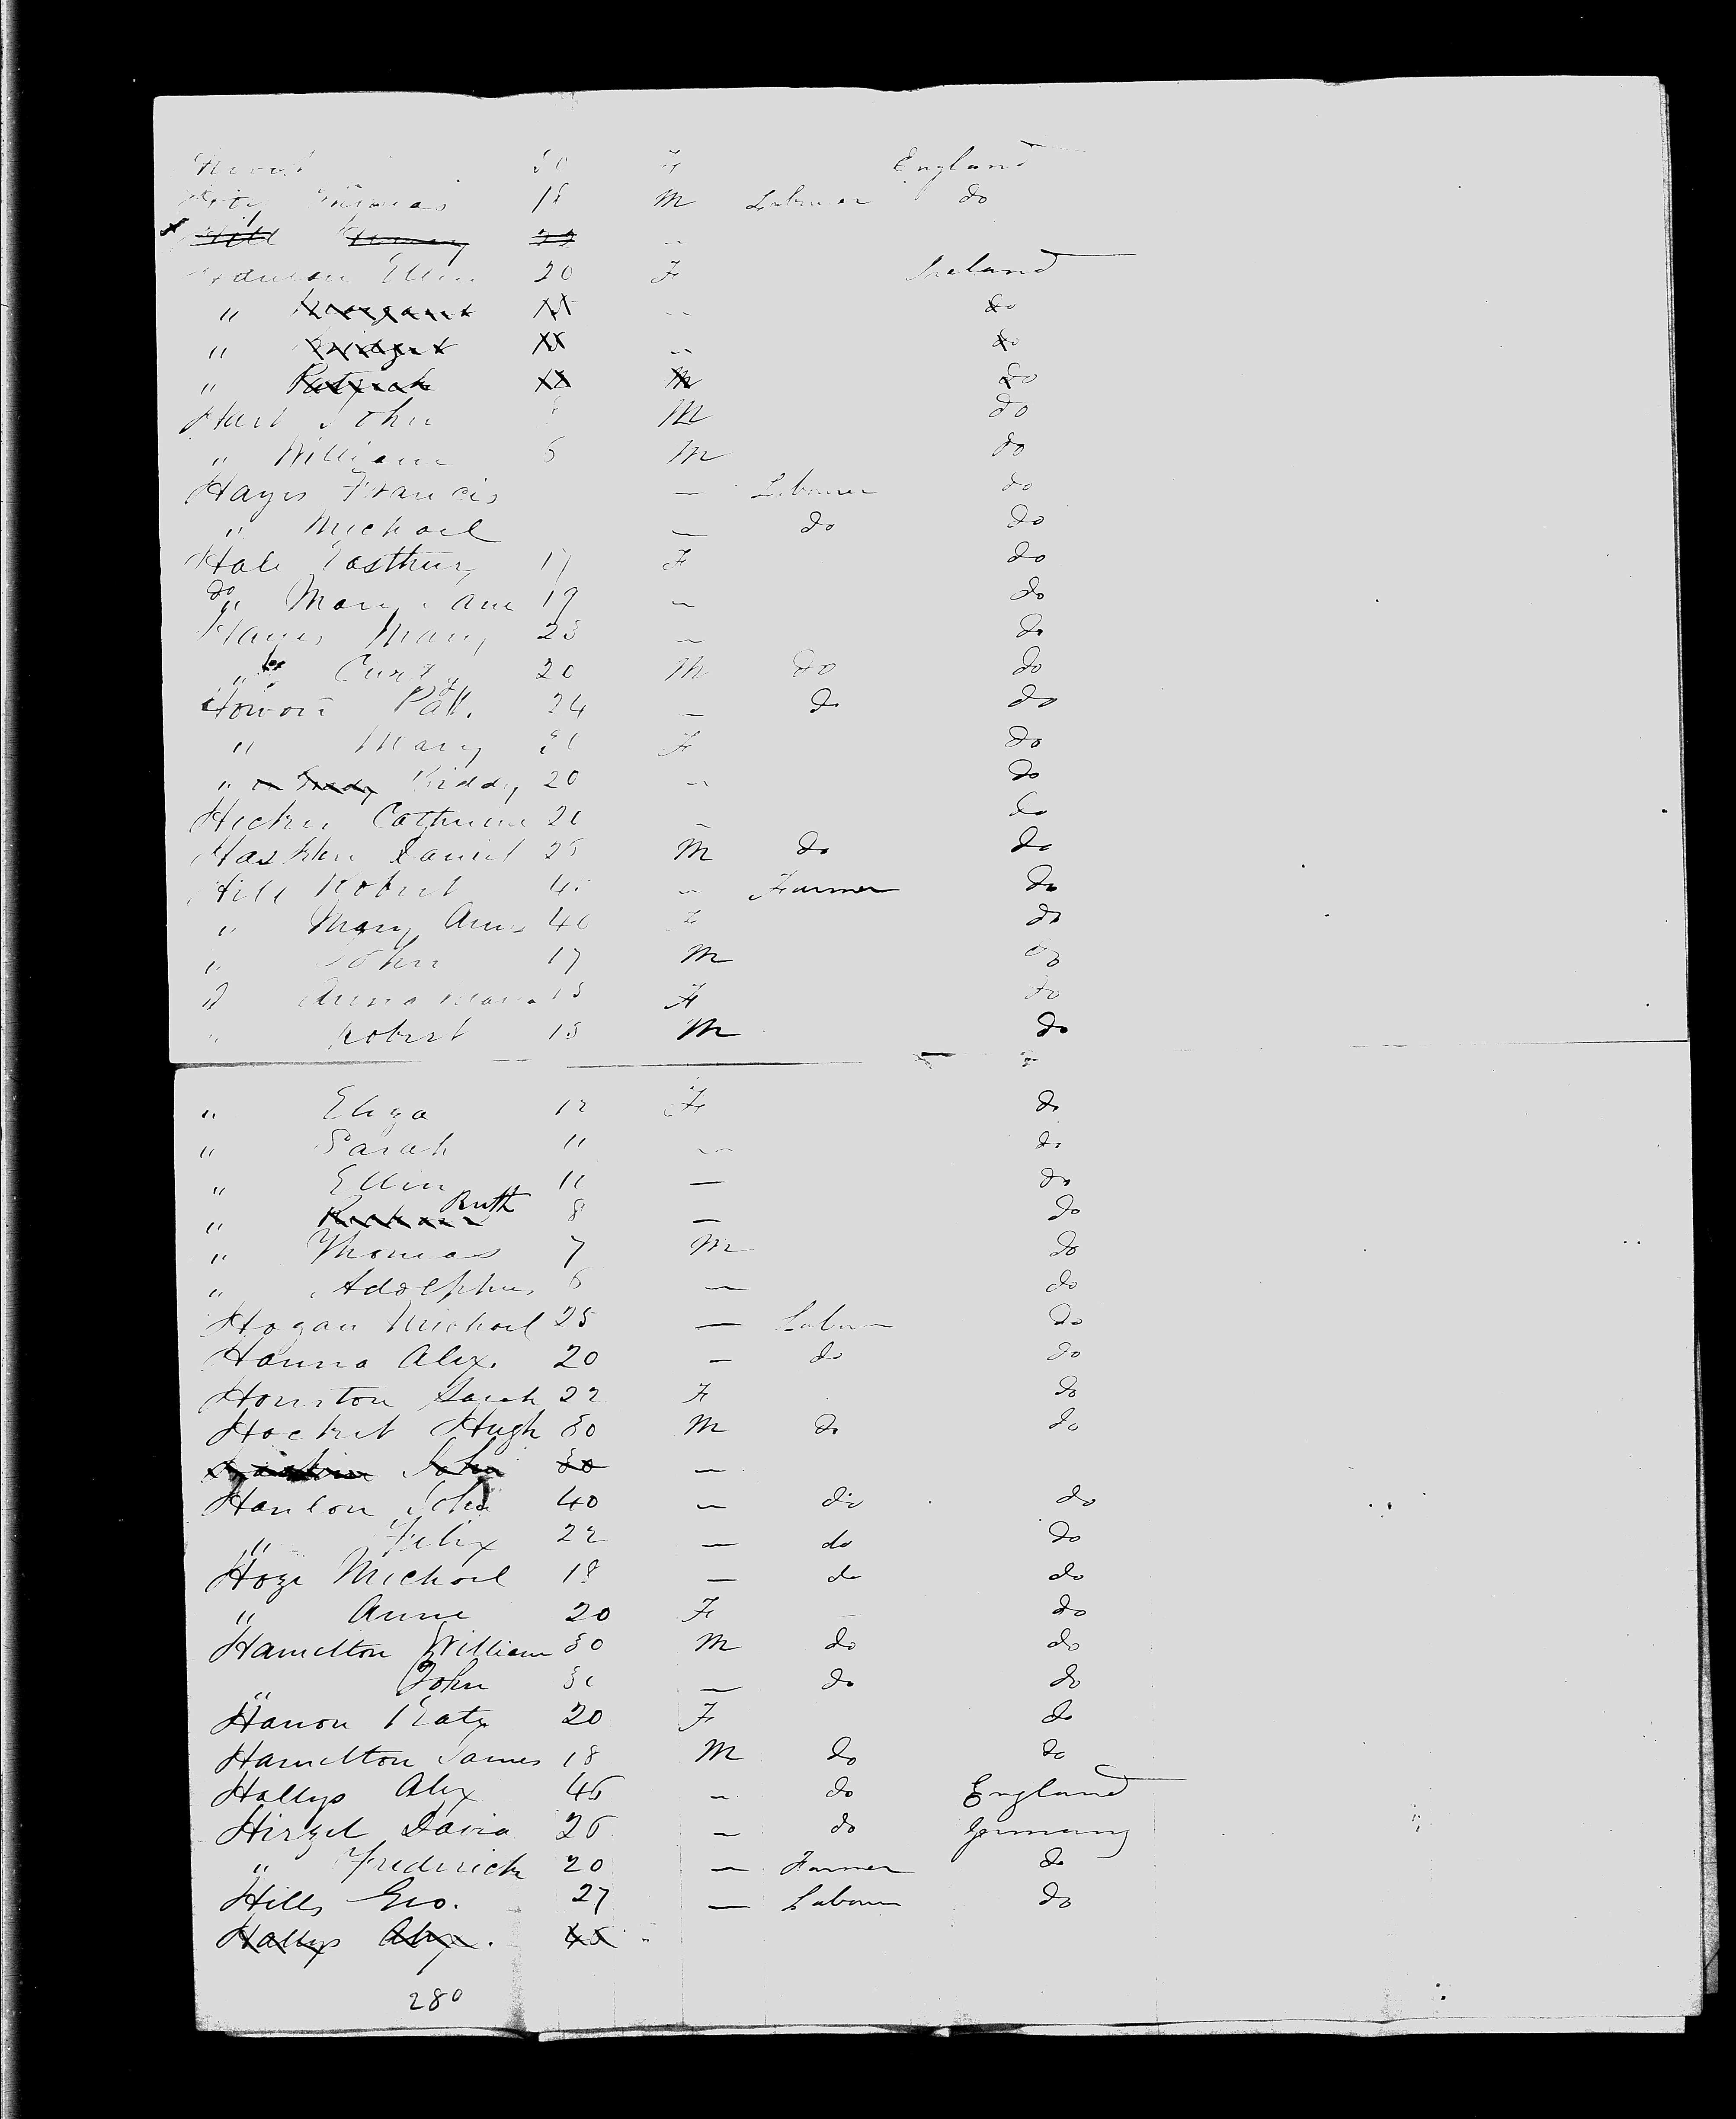 30 F England
Thomas 18 M Labourer do
Hill 22 "
Ellen 20 F Ireland
" Margaret "  do
" Bridget " do
" Patrick M do
Hart John M do
" William 5 M do
Hayes Francis — Labourer do
" Michael — do do
Hale 17 F do
do " Mary Ann 19 — do
Hayes Mary 23 — do
" 20 M do do
Patt. 24 — do do
" Mary F do
" Biddy 20 " do
Catherine 20 — do
Daniel 25 M do do
Hill Robert — Farmer do
" Mary Ann 40 F do
" John 17 M do
" Anna Maria 15 F do
" Robert 13 M do
" Eliza 12 F do
" Sarah 11 " do
" Ellen 11 — do
" Ruth 8 — do
" Thomas 7 M do
" Adolphus 6 — do
Hogan Michael 25 — Labour do
Hanna Alex. 20 — do do
Houston Sarah 22 F do
Hocket Hugh 30 M do do
John 30 —
Hanlon John 40 — do do
" Felix 22 — do do
Hoge Michael 18 — do do
" Anne 20 F do
Hamilton William 30 M do do
" John 30 — do do
Hanon Katy 20 F do
Hamilton James 18 M do do
Hallys Alex 45 — do England
Hirzel David 26 — do Germany
" Frederick 20 — Farmer do
Hills Geo. 27 — Labour do
Hallys Alex. 45 "
280